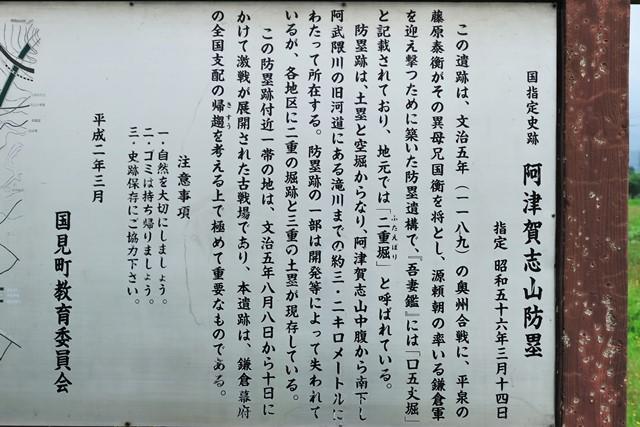 国指定史跡 阿津賀志山防塁
指定 昭和五十六年三月十四日
この遺跡は、文治五年(一一八九)の奥州合戦に、平泉の
藤原泰衡がその異母兄国衡を将とし、源頼朝の率いる鎌倉軍
を迎え撃つために築いた防塁遺構で、『吾妻鑑』には「口五丈堀」
と記載されており、地元では「二重堀」と呼ばれている。
ふたえぼり
防塁跡は、土塁と空堀からなり、阿津賀志山中腹から南下し
阿武隈川の旧河道にある滝川までの約三・二キロメートルに
わたって所在する。防塁跡の一部は開発等によって失われて
いるが、各地区に二重の堀跡と三重の土塁が現存している。
この防塁跡付近一帯の地は、文治五年八月八日から十日に
かけて激戦が展開された古戦場であり、本遺跡は、鎌倉幕府
の全国支配の帰趨を考える上で極めて重要なものである。
きすう
注意事項
一・自然を大切にしましょう。
二・ゴミは持ち帰りましょう。
三・史跡保存にご協力下さい。
平成二年三月
国見町教育委員会